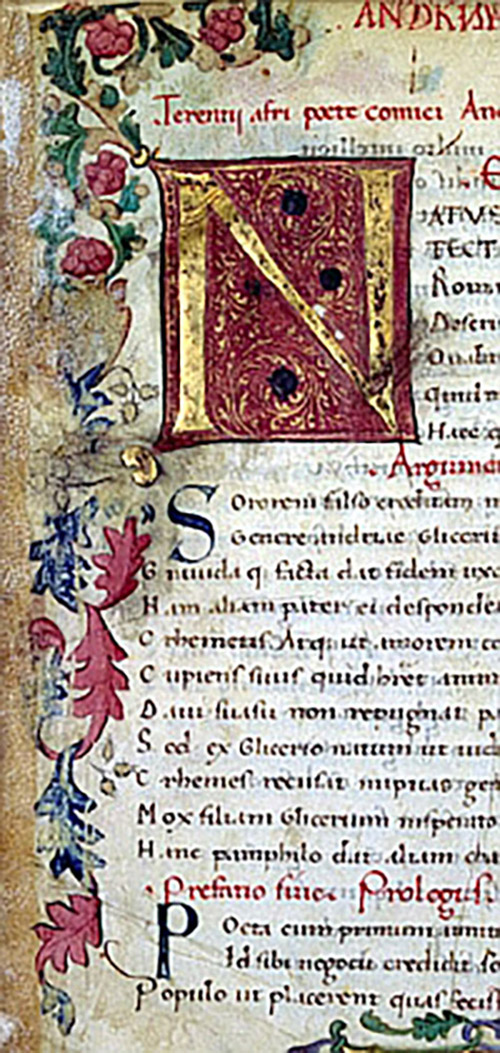 ANDRIA
Terentij afri poete comici An
N
ATVS
TECT
Roma
Deseri
Quali
Quin
Haec q
Argumen
Sororem falso creditam m
Genere andriae Gliceri
G rauida q facta dat fidem uxo
H am aliam pater ei desponde
C rhemetis Atq ut amorem co
C upiens suus quid hret anim
D aui suasu non repugnat p
S ed ex Glicerio natum ut uid
C rhemes recusat nuptias gen
M ox filiam Glicerium insperato
H anc pamphilo dat aliam cha
Prefatio siue Prologus
Poeta cum primum animu
Id sibi negocii credidit so
Populo ut placerent quas fecis